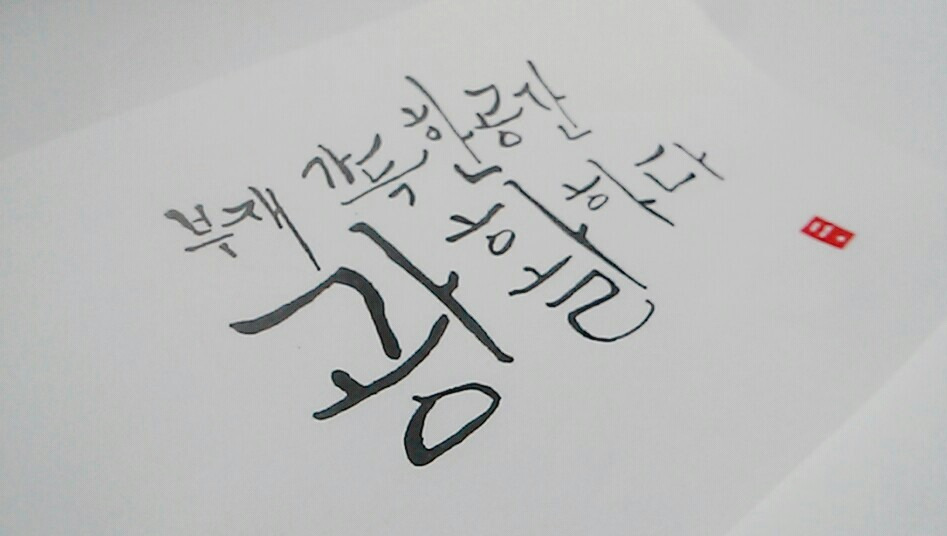 부재 가득한 공간
광활하다